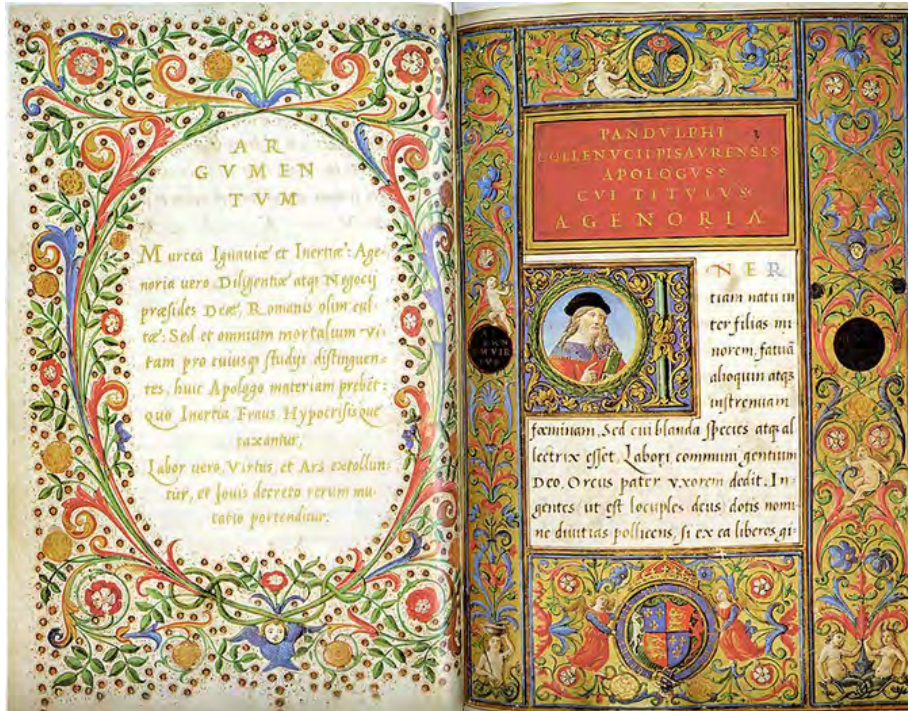 AR
GVMEN
TVM
Murcea Ignauiæ et Inertiæ: Age-
noria uero Diligentiæ atqꝫ Negocij
præsides Deæ, Romanis olim cul-
tæ: Sed et omnium mortalium vi-
tam pro cuiusqꝫ studijs distinguen-
tes, huic Apologo materiam prebēt:
quo Inertia Fraus Hypocrisisque
taxantur,
Labor uero, Virtus et Ars extollun-
tur, et Iouis decreto rerum mu-
tatio portenditur.
PANDVLPHI
COLLENVCII PISAVRENSIS
APOLOGVSS
CVI TITVLVS
AGENORIA
INER
tiam natu in
ter filias mi
norem, fatuā
alioquin atqꝫ
instrenuam
fœminam, Sed cui blanda species atqꝫ al
lectrix esset, Labori communi gentium
Deo, Orcus pater vxorem dedit. In-
gentes ut est locuples deus dotis nomi-
ne diuitias pollicens, si ex ea liberos gi-